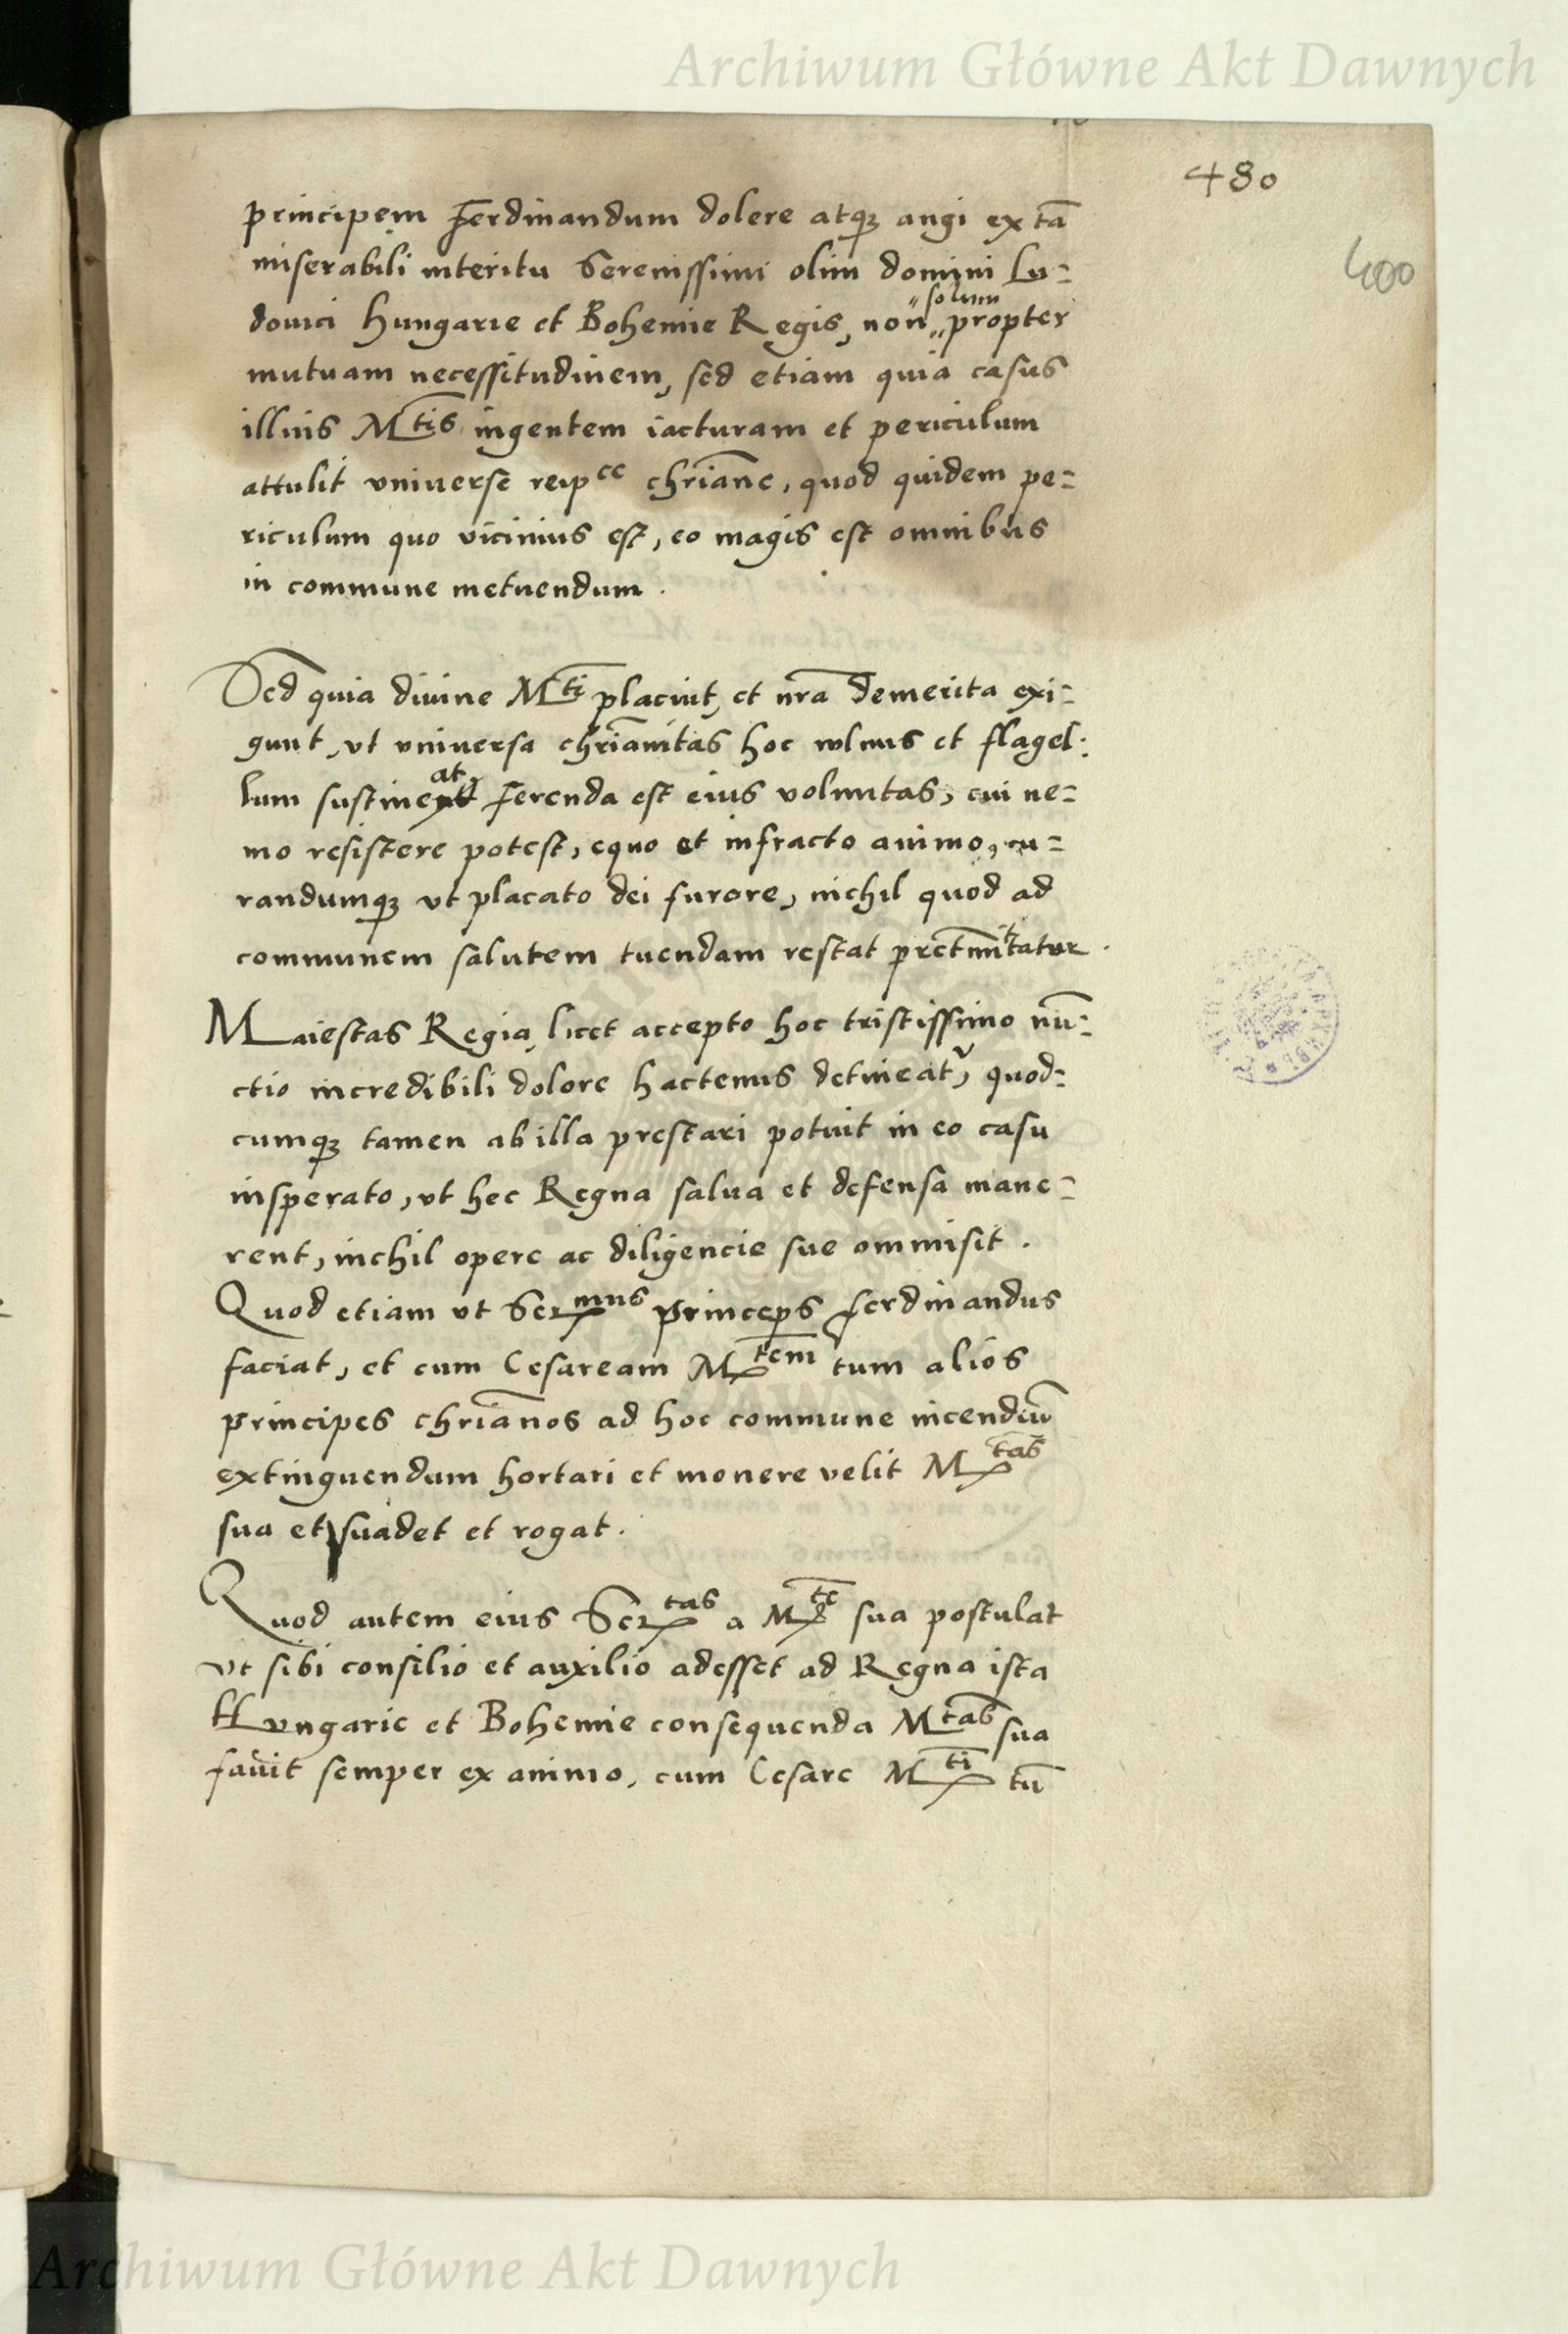 Archiwum Główne Akt Dawnych
480
400
principem Ferdinandum dolere atqꝫ angi ex tā
miserabili interitu Serenissimi olim domini Lu=
douici Hungarie et Bohemie Regis, non „solum„ propter
mutuam necessitudinem, sed etiam quia casus
illius M̅tis ingentem iacturam et periculum
attulit vniuerse reipce chr̄iane, quod quidem pe=
riculum quo vicinius est, eo magis est omnibus
in commune metuendum .
Sed quia diuine M̅ti placuit, et nr̄a demerita exi=
gunt, vt vniuersa chr̄ianitas hoc wlnus et flagel:
lum sustineat Ferenda est eius voluntas, cui ne=
mo resistere potest, equo et infracto animo, cu=
randumqꝫ vt placato dei furore, nichil quod ad
communem salutem tuendam restat pretm̄ittatur .
Maiestas Regia, licet accepto hoc tristissimo nū=
ctio incredibili dolore hactenus detineat̃, quod=
cumqꝫ tamen ab illa prestari potuit in eo casu
insperato, vt hec Regna salua et defensa mane=
rent, nichil opere ac diligencie sue ommisit .
Quod etiam vt Sermus princeps ferdinandus
faciat, et cum Cesaream Mtem tum alios
principes chr̄ianos ad hoc commune incendiū
extinguendum hortari et monere velit Mtas
sua et suadet et rogat .
Quod autem eius Sertas a Mte sua postulat
vt sibi consilio et auxilio adesset ad Regna ista
Hungarie et Bohemie consequenda Mtas sua
fauit semper ex animo, cum Cesare Mti tū
Archiwum Główne Akt Dawnych